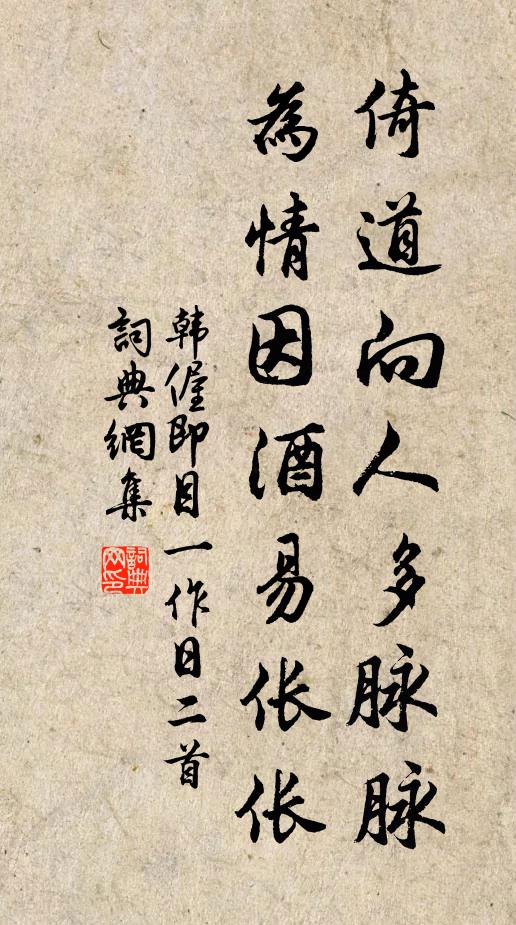 倚道向人多脉脉
為情因酒易伥伥
韩偓即目一作日二首
詞典網集
詞典网印